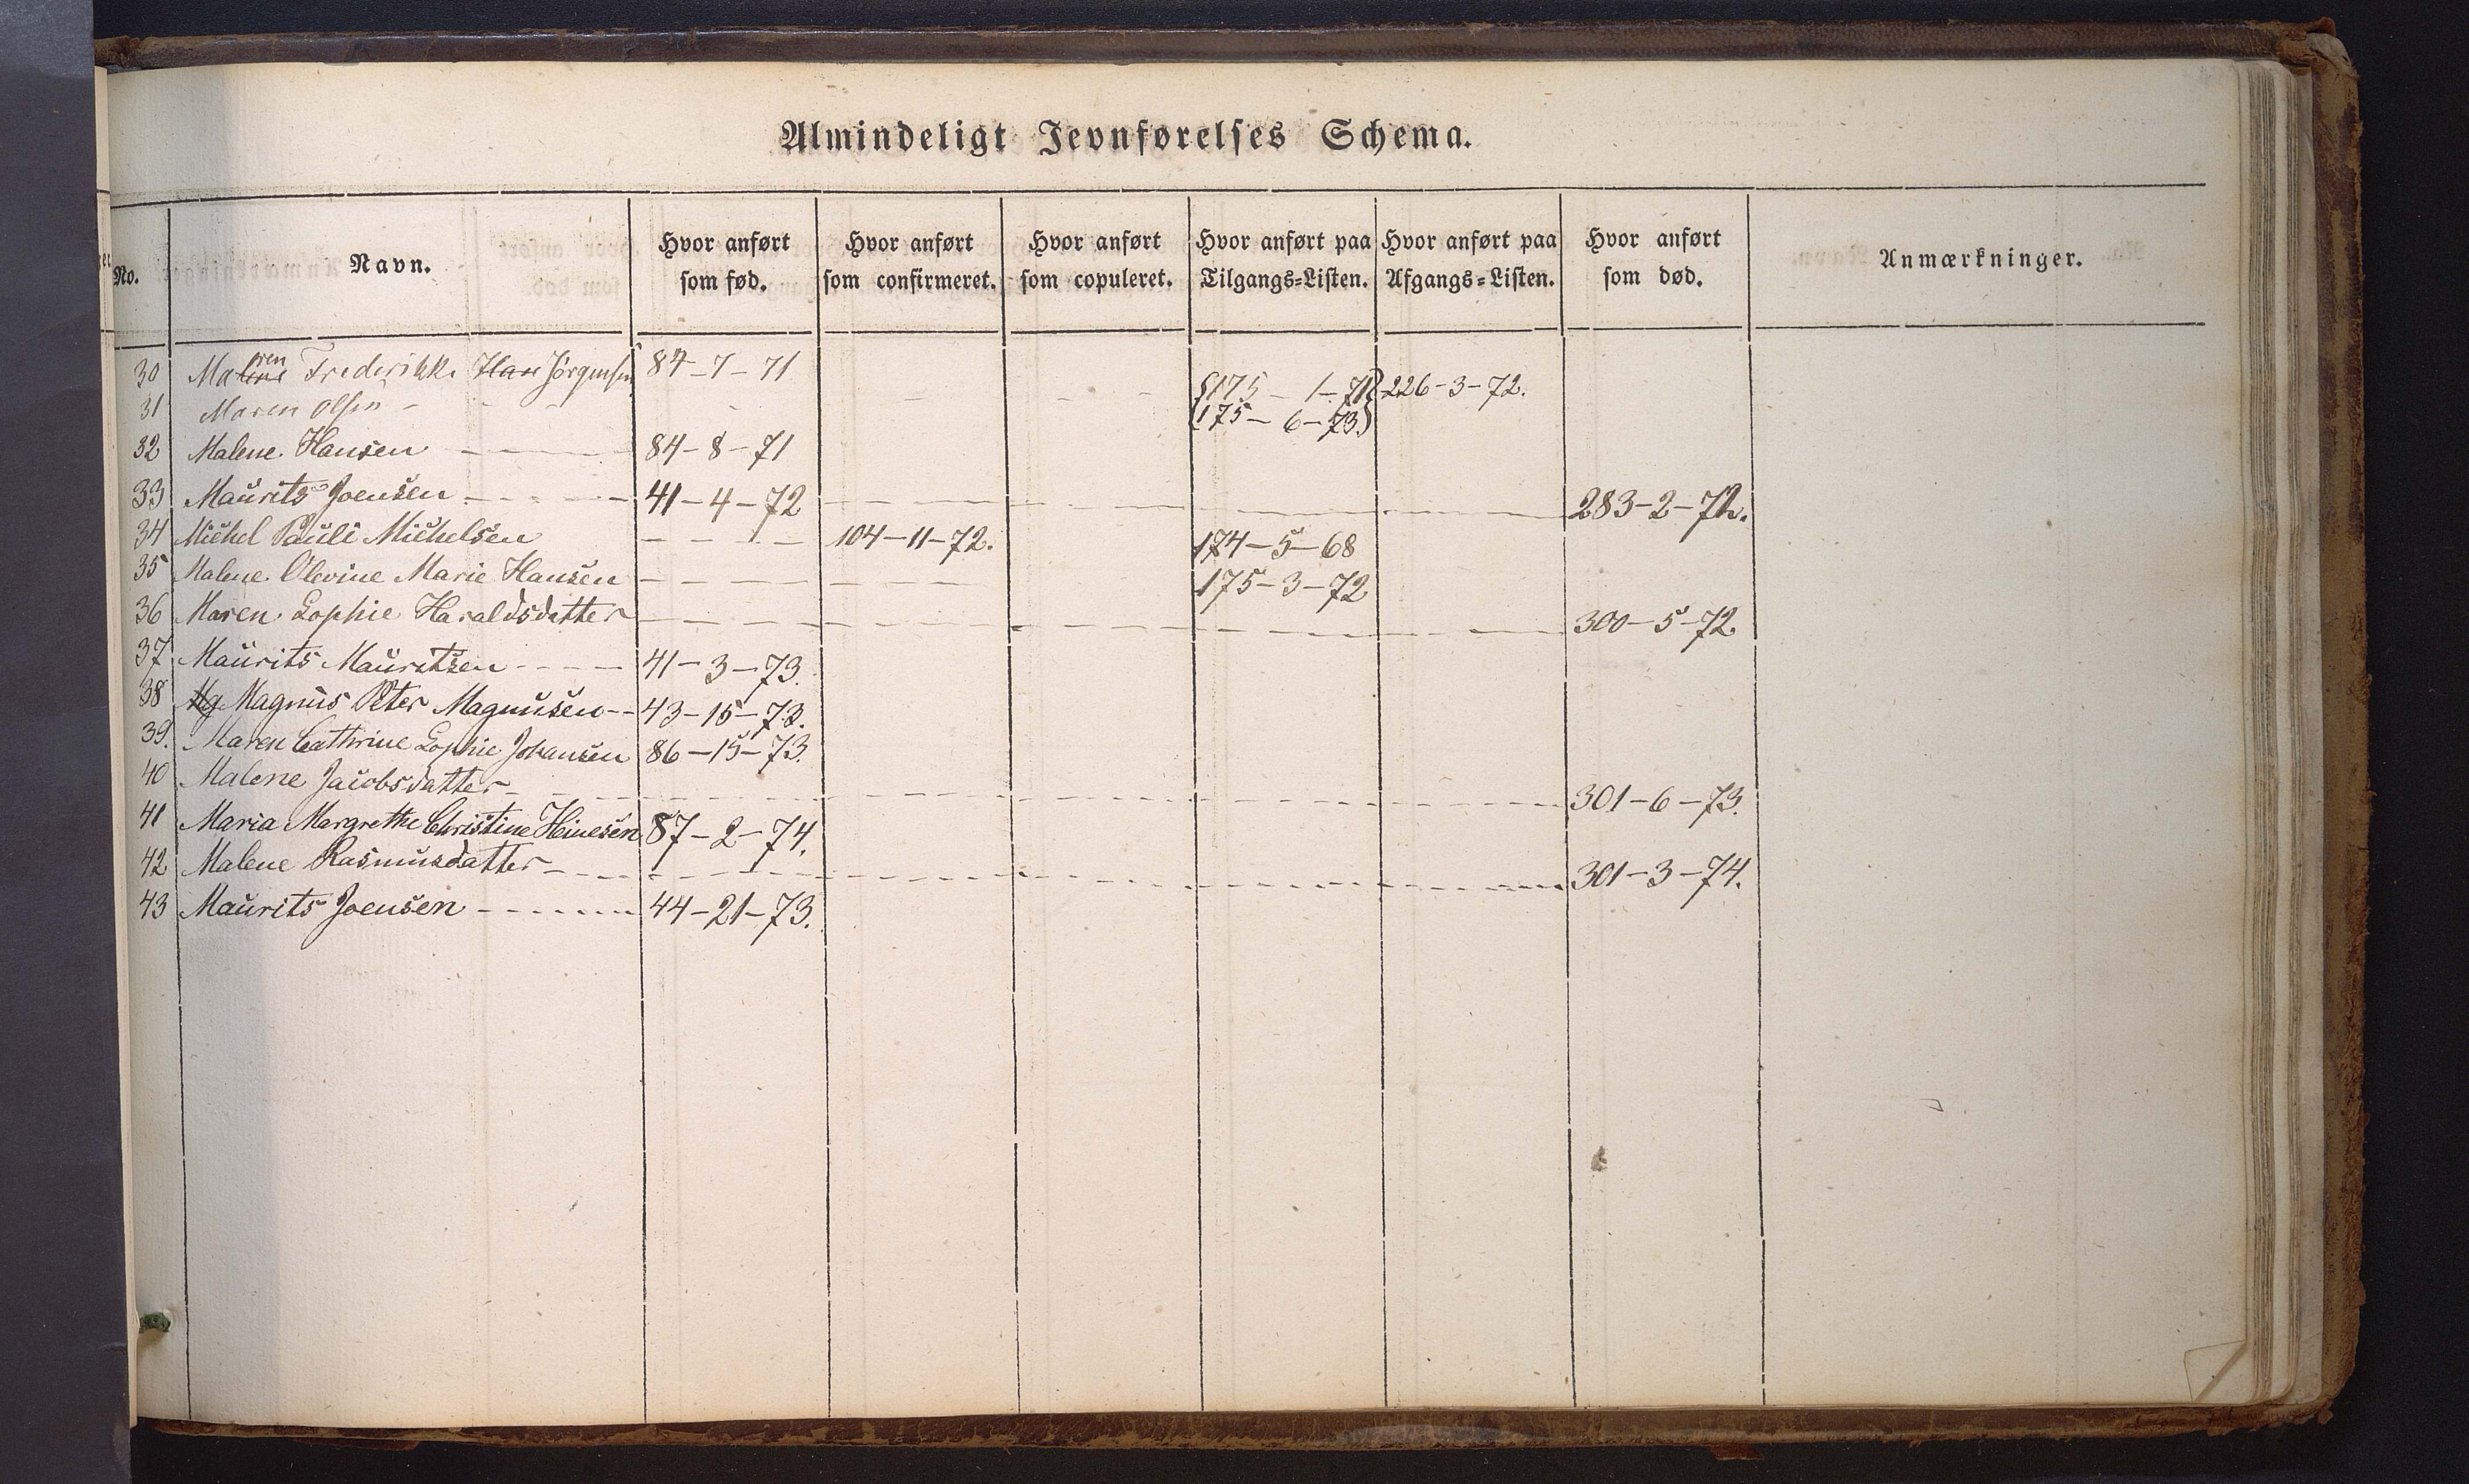 Almindeligt Jevnførelses Schema.
No. Navn. Hvor anført som fød. Hvor anført som confirmeret. Hvor anført som copuleret. Hvor anført paa Tilgangs-Listen. Hvor anført paa Afgangs-Listen. Hvor anført som død. Anmærkninger.
30 Maren Frederikke Jørgensen 84-7-71
31 Maren Olsen - - - - - {175-1-71} 226-3-72.
{175-6-73}
32 Malene Hansen - - - 84-8-71
33 Maurits Joensen - - - 41-4-72 - - - - - 283-2-72.
34 Michel Pauli Michelsen - - - - 104-11-72. 174-5-68
35 Malene Olevine Marie Hansen - - - - - - 175-3-72
36 Maren Sophie Haraldsdatter - - - - - - - 300-5-72.
37 Maurits Mauritsen - - - - 41-3-73.
38 Magnus Peter Magnusen - - 43-15-73.
39. Maren Cathrine Sophie Johansen 86-15-73.
40 Malene Jacobsdatter - - - - - - - 301-6-73.
41 Maria Margrethe Christine Heinesen 87-2-74.
42 Malene Rasmusdatter - - - - - - - 301-3-74.
43 Maurits Joensen - - - - - 44-21-73.